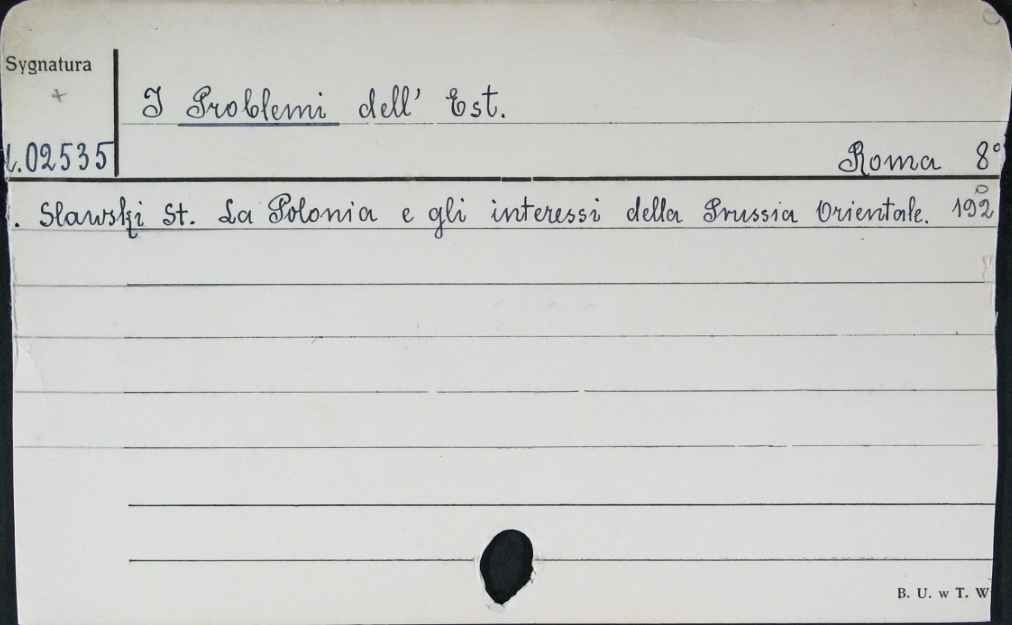 Sygnatura
+
I Problemi dell' Est.
02535
Roma 8°
. Slawski St. La Polonia e gli interessi della Prussia Orientale. 192
B. U. w T. W